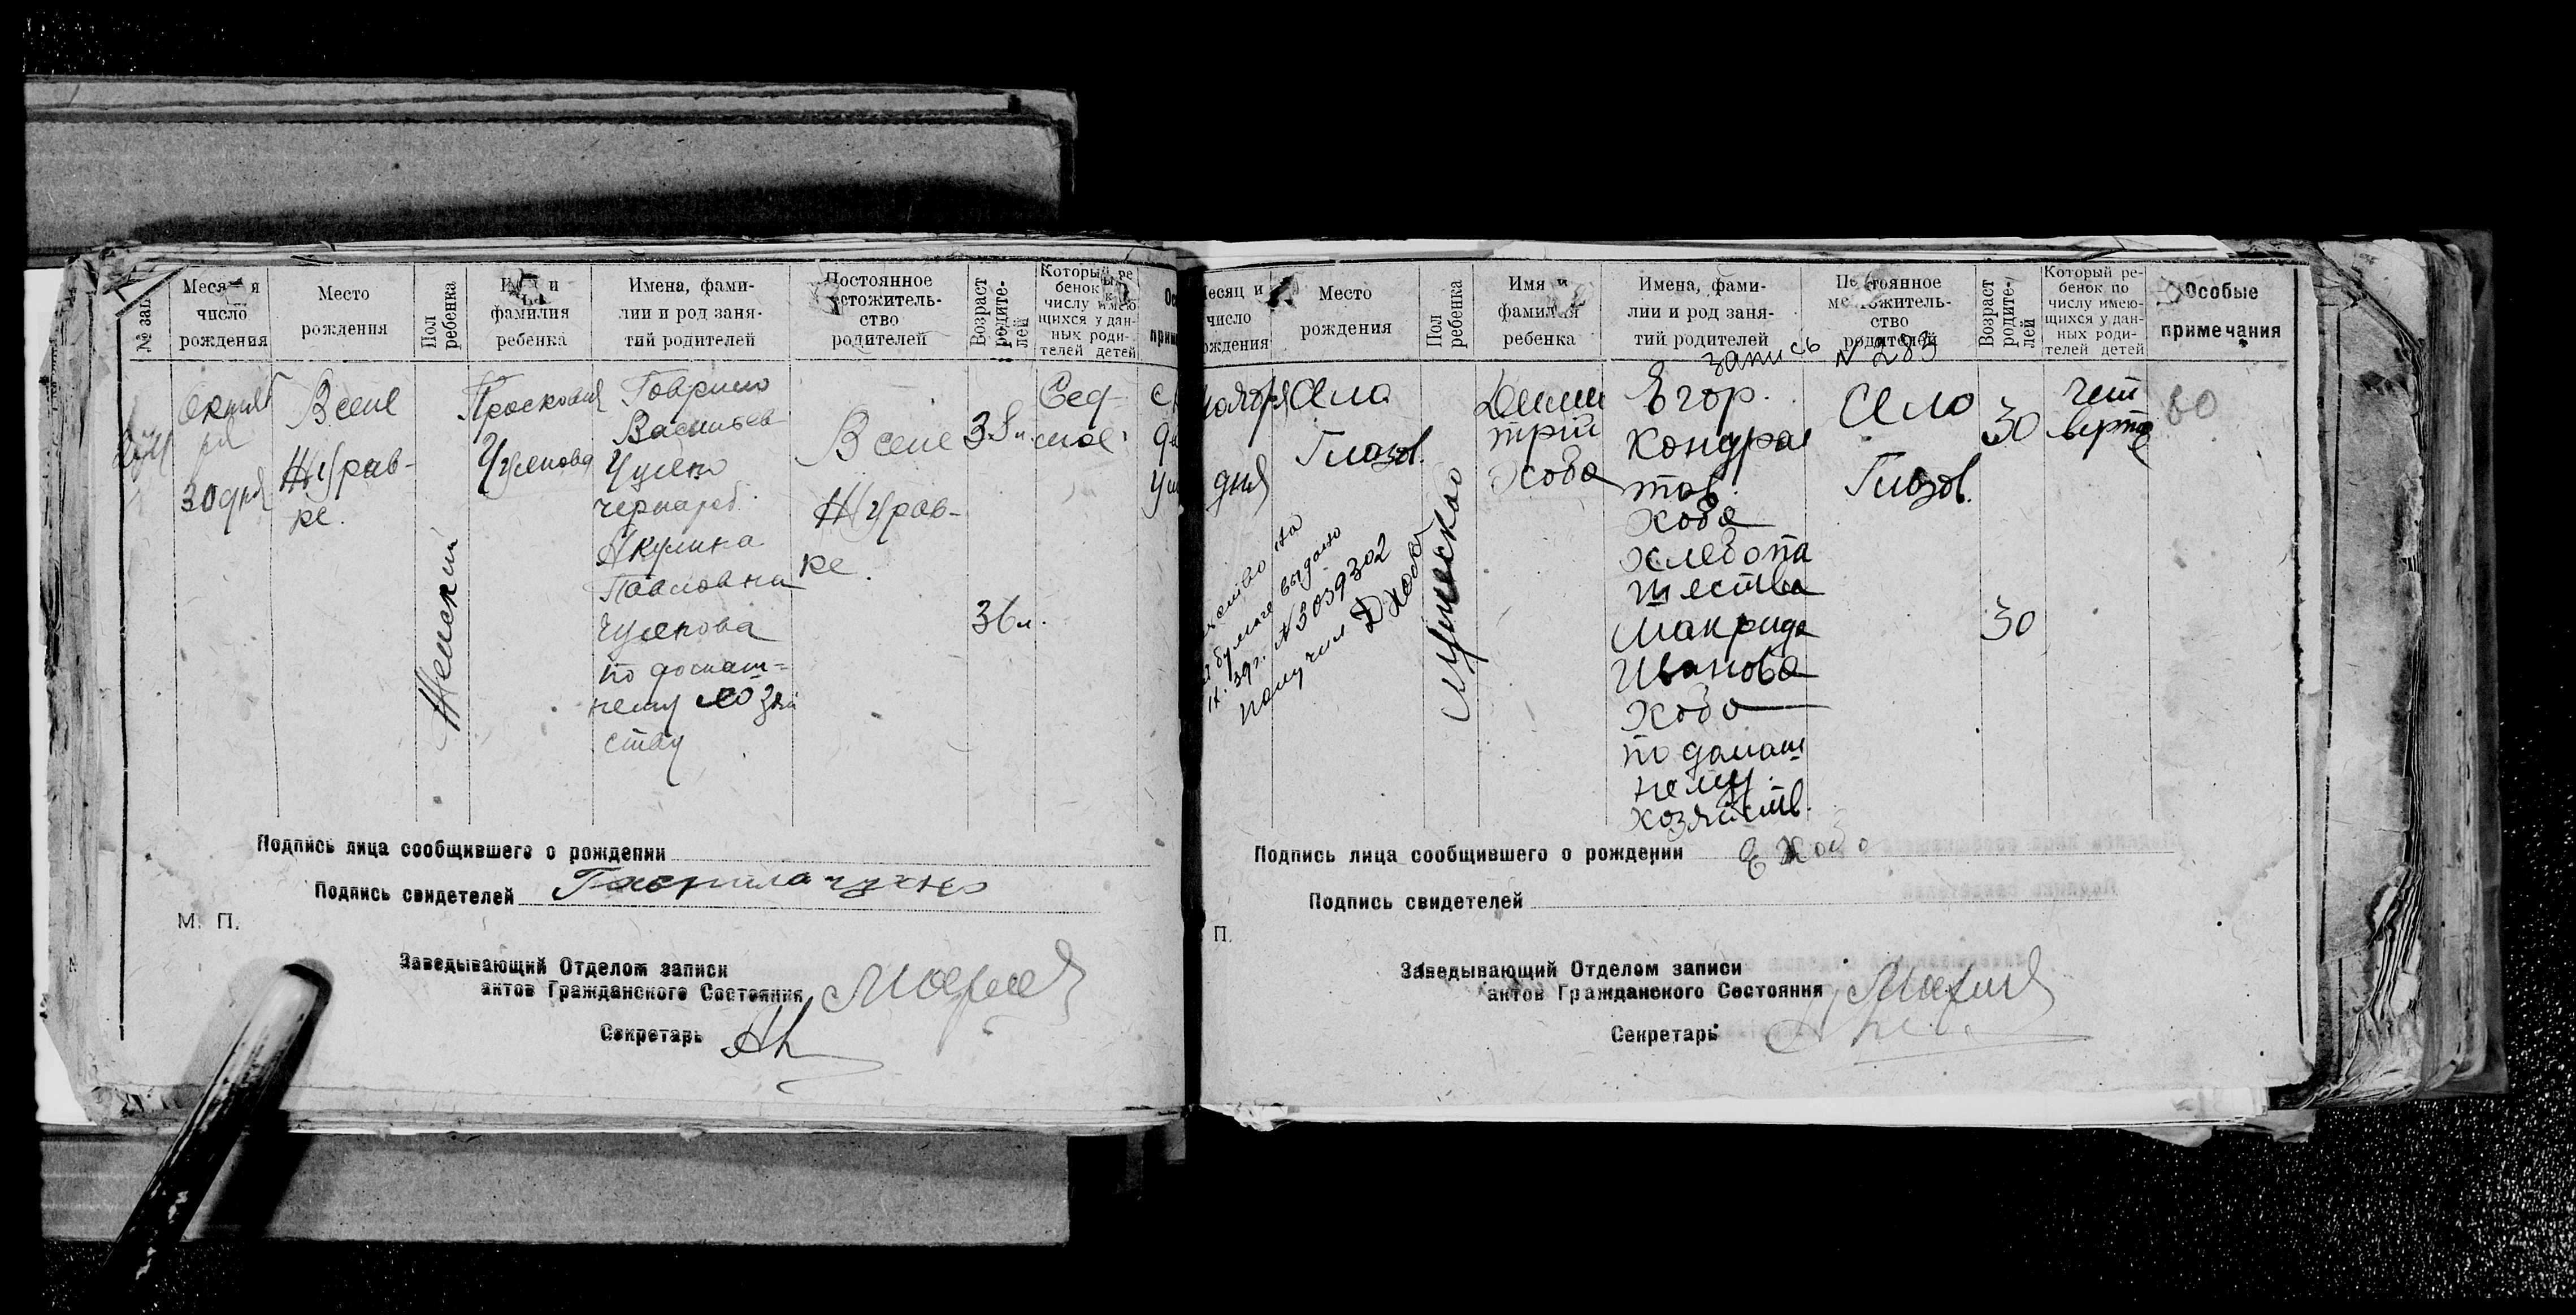 № зап.
Месяц и
число
рождения
Место
рождения
Пол
ребенка
Имя и
фамилия
ребенка
Имена, фами-
лии и род заня-
тий родителей
Постоянное
местожитель-
ство
родителей
Возраст
родите-
лей
Который ре
бенок
числу имею
щихся у дан-
ных роди-
телей детей
Октяб
ря
30 дня
В селе
Журав-
ке.
Женский
Просковия
Чуенова
Говрило
Васильев
Чуено
чернораб.
Якулина
Павловна
Чуенова
по домаш=
нему хозяй
ству
В селе
Журав-
ке.
38 л.
36 л.
Сед
мое
Подпись лица сообщившего о рождении
Подпись свидетелей Гаврила чуено
М. П.
Заведывающий Отделом записи
актов Гражданского Состояния
Секретарь
Месяц и
число
рождения
Место
рождения
Пол
ребенка
Имя и
фамилия
ребенка
Имена, фами-
лии и род заня-
тий родителей
Постоянное
местожитель-
ство
родителей
Возраст
родите-
лей
Который ре-
бенок по
числу имею-
щихся у дан-
ных роди-
телей детей
Особые
примечания
запись № 283
ноября
дня
Село
Глазов.
Мужеского
Дими
трий
Хобо
Егор.
Кондра
тов.
Хобо
хлебопа
шества
Макрида
Иванова
Хобо
по домаш
нему
хозяйств.
Село
Глазов.
30
30
чет
верто
е
бумаге выдано
39 г. № 3039302
получил ДХобо
Подпись лица сообщившего о рождении Е Хобо
Подпись свидетелей
П.
Заведывающий Отделом записи
актов Гражданского Состояния
Секретарь